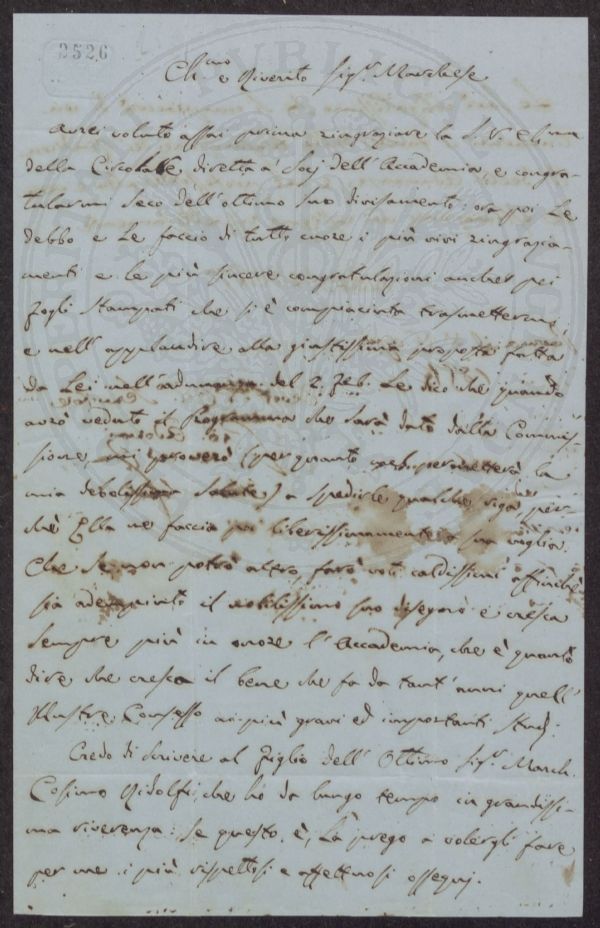 2526
Ch.mo e Riverito Sig.r Marchese
Avrei voluto assai prima ringraziare la S. V. Ch.ma
della Circolare diretta a' Socj dell'Accademia, e congra-
tularmi seco dell'ottimo suo divisamento: ora poi Le
debbo e Le faccio di tutto cuore i più vivi ringrazia-
menti e le più sincere congratulazioni anche pei
fogli stampati che si è compiaciuta trasmettermi,
e nell'applaudire alla giustissima proposta fatta
da Lei nell'adunanza del 2. Feb. Le dico che quando
avrò veduto il Programma che sarà dato dalla Commis-
sione, mi proverò (per quanto permetterà la
mia debolissima salute) a spedirle qualche riga per-
chè Ella ne faccia poi liberissimamente a sua voglia.
Che se non potrò altro, farò voti caldissimi affinchè
sia adempiuto il nobilissimo suo disegno e cresca
sempre più in onore l'Accademia, che è quanto
dire che cresca il bene che fa da tant'anni quell'
Illustre Consesso ai più gravi ed importanti studj.
Credo di scrivere al Figlio dell'Ottimo Sig.r March.
Cosimo Ridolfi, che ho da lungo tempo in grandissi-
ma riverenza: se questo è, La prego a volergli fare
per me i più rispettosi e affettuosi ossequj.